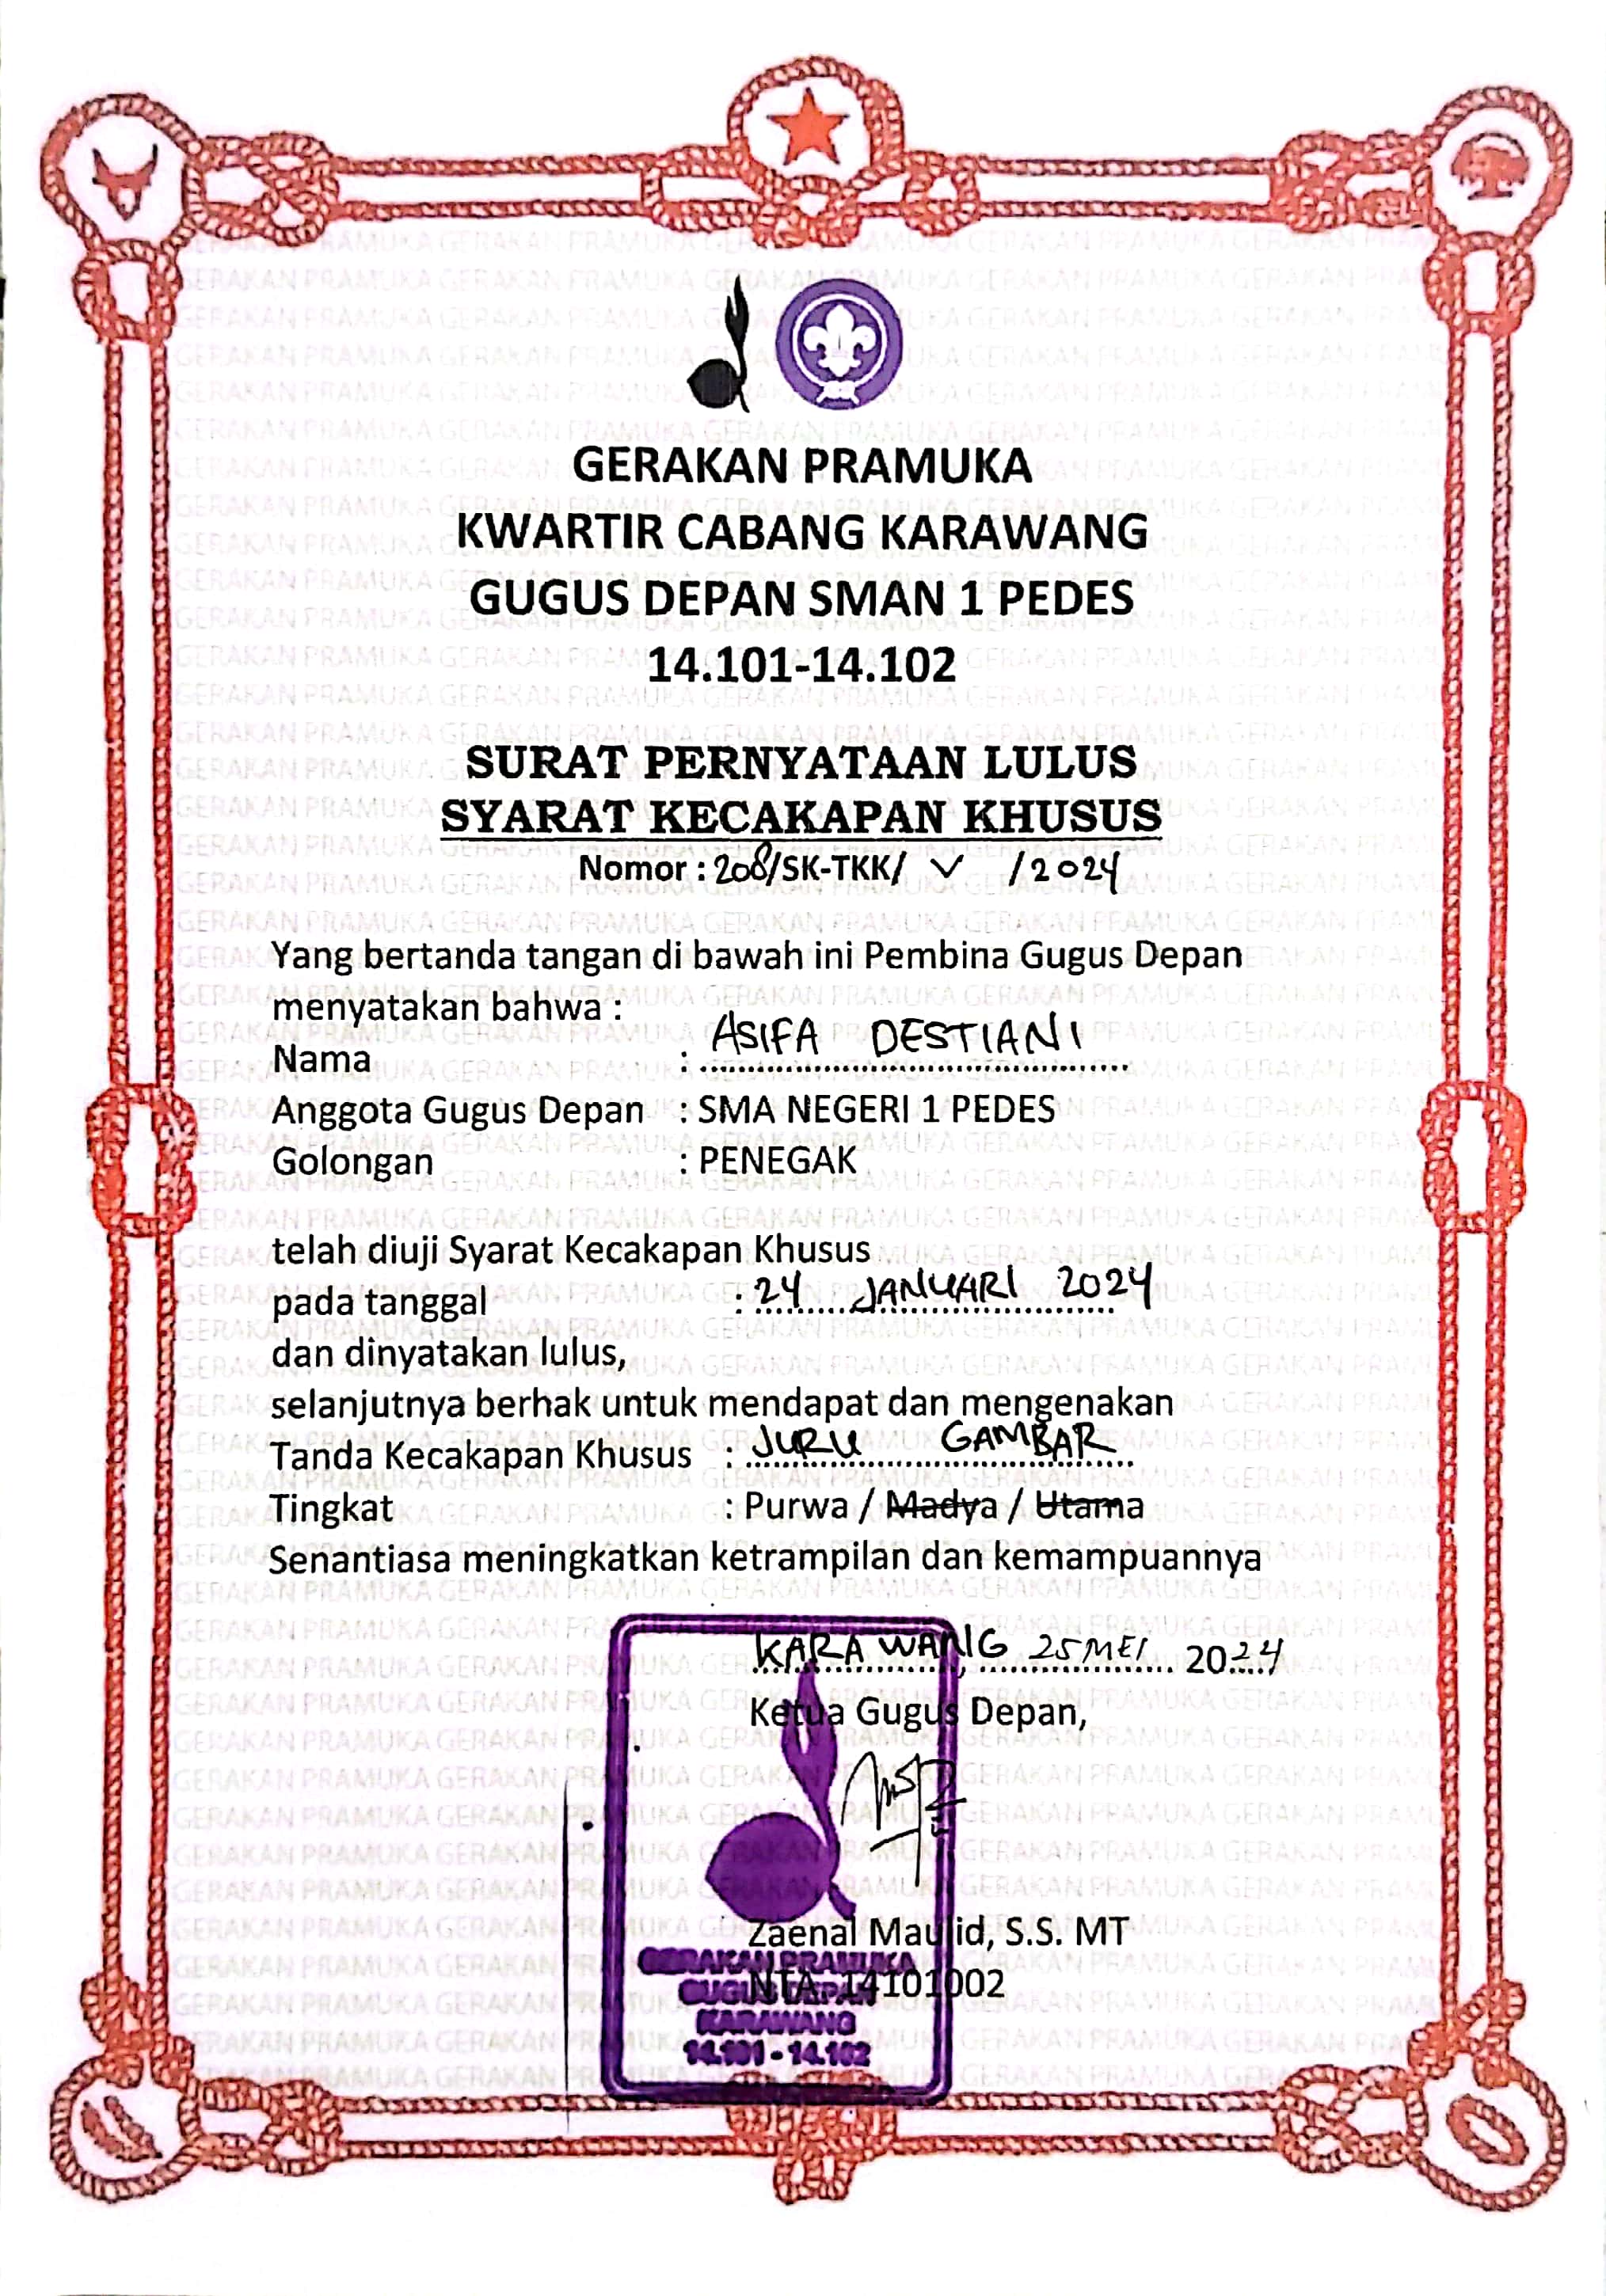 GERAKAN PRAMUKA
KWARTIR CABANG KARAWANG
GUGUS DEPAN SMAN 1 PEDES
14.101-14.102
SURAT PERNYATAAN LULUS
SYARAT KECAKAPAN KHUSUS
Nomor : 208/SK-TKK/ V /2024
Yang bertanda tangan di bawah ini Pembina Gugus Depan
menyatakan bahwa :
Nama : ASIFA DESTIANI
Anggota Gugus Depan : SMA NEGERI 1 PEDES
Golongan : PENEGAK
telah diuji Syarat Kecakapan Khusus
pada tanggal : 24 JANUARI 2024
dan dinyatakan lulus,
selanjutnya berhak untuk mendapat dan mengenakan
Tanda Kecakapan Khusus : JURU GAMBAR
Tingkat : Purwa / Madya / Utama
Senantiasa meningkatkan ketrampilan dan kemampuannya
KARAWANG, 25 MEI 2024
Ketua Gugus Depan,
Zaenal Maulid, S.S. MT
NTA. 14101002
GERAKAN PRAMUKA
GUGUS DEPAN
KARAWANG
14.101 - 14.102